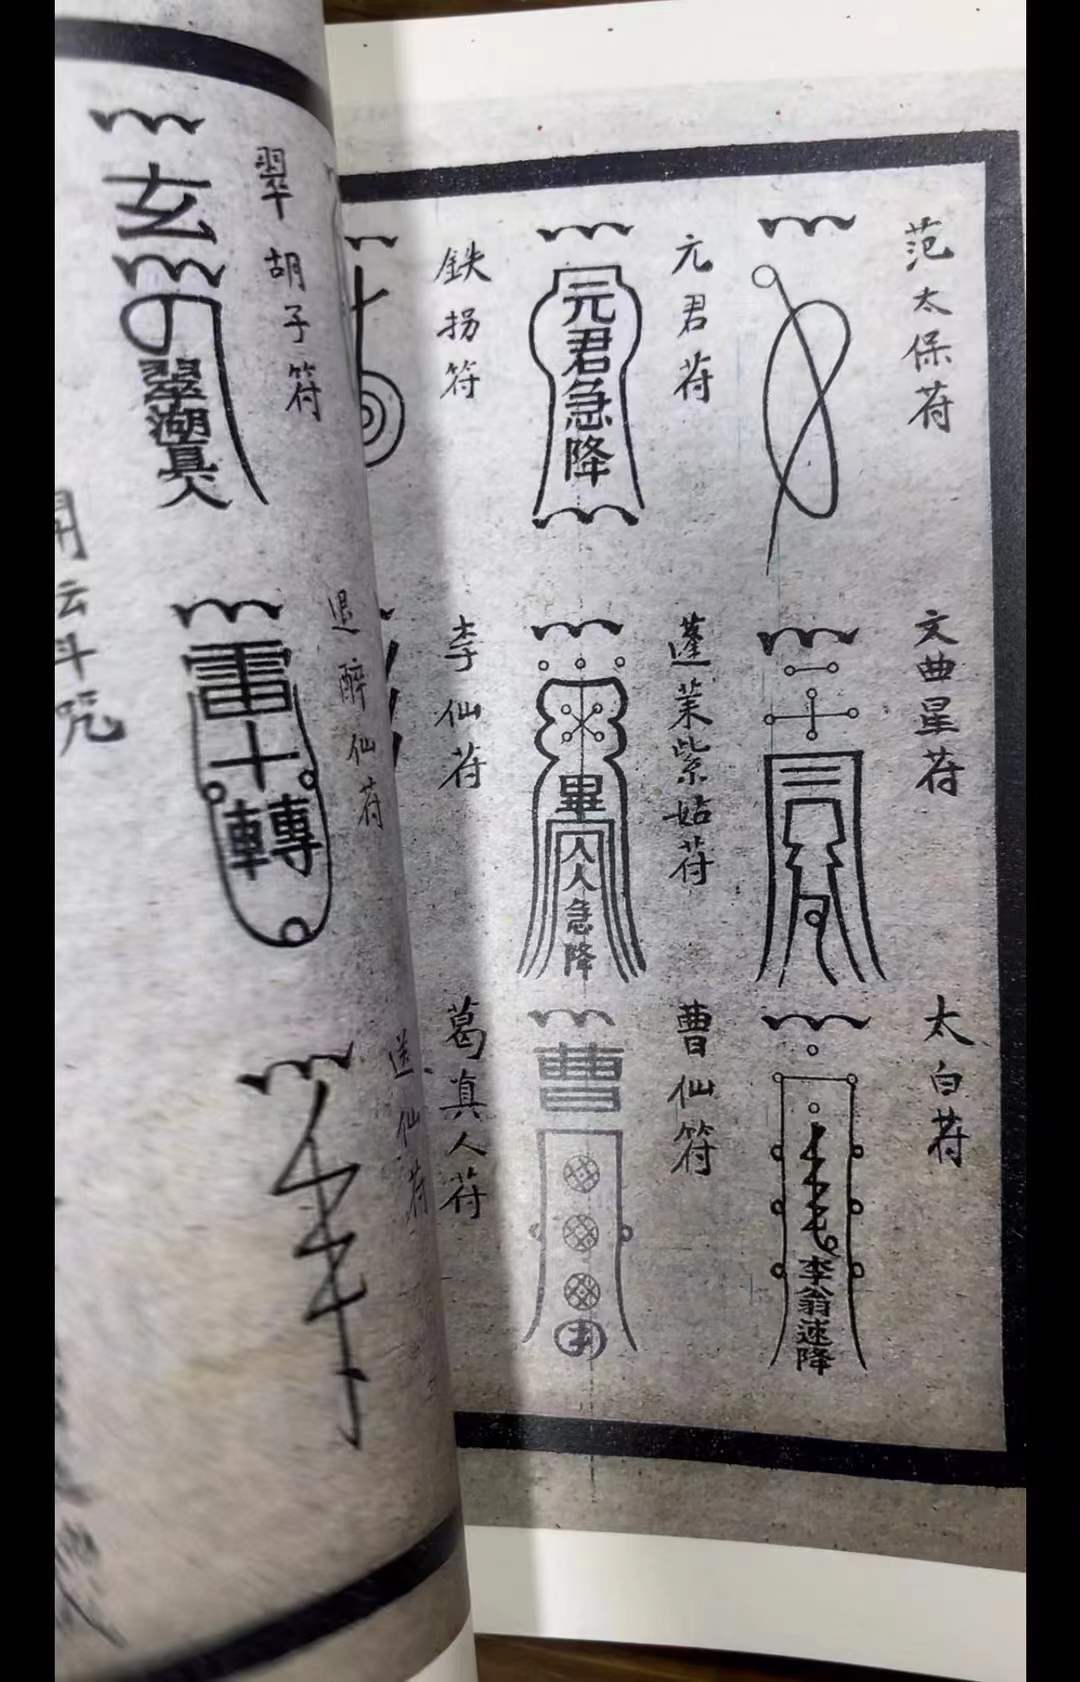 范太保符
元君符
元君急降
鉄拐符
文曲星符
蓬莱紫姑符
畢
人人急降
李仙符
太白符
李翁速降
曹仙符
曹
葛真人符
翠胡子符
玄
翠湖真人
退醉仙符
雷
十
轉
送仙符
開云斗咒